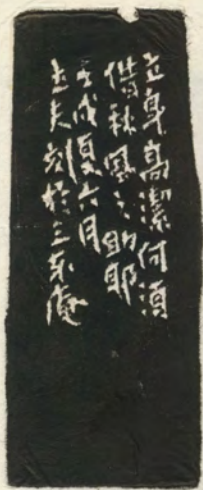 立身高潔何須
借秋風之助耶
壬戌夏六月
玉夫刻於三東庵